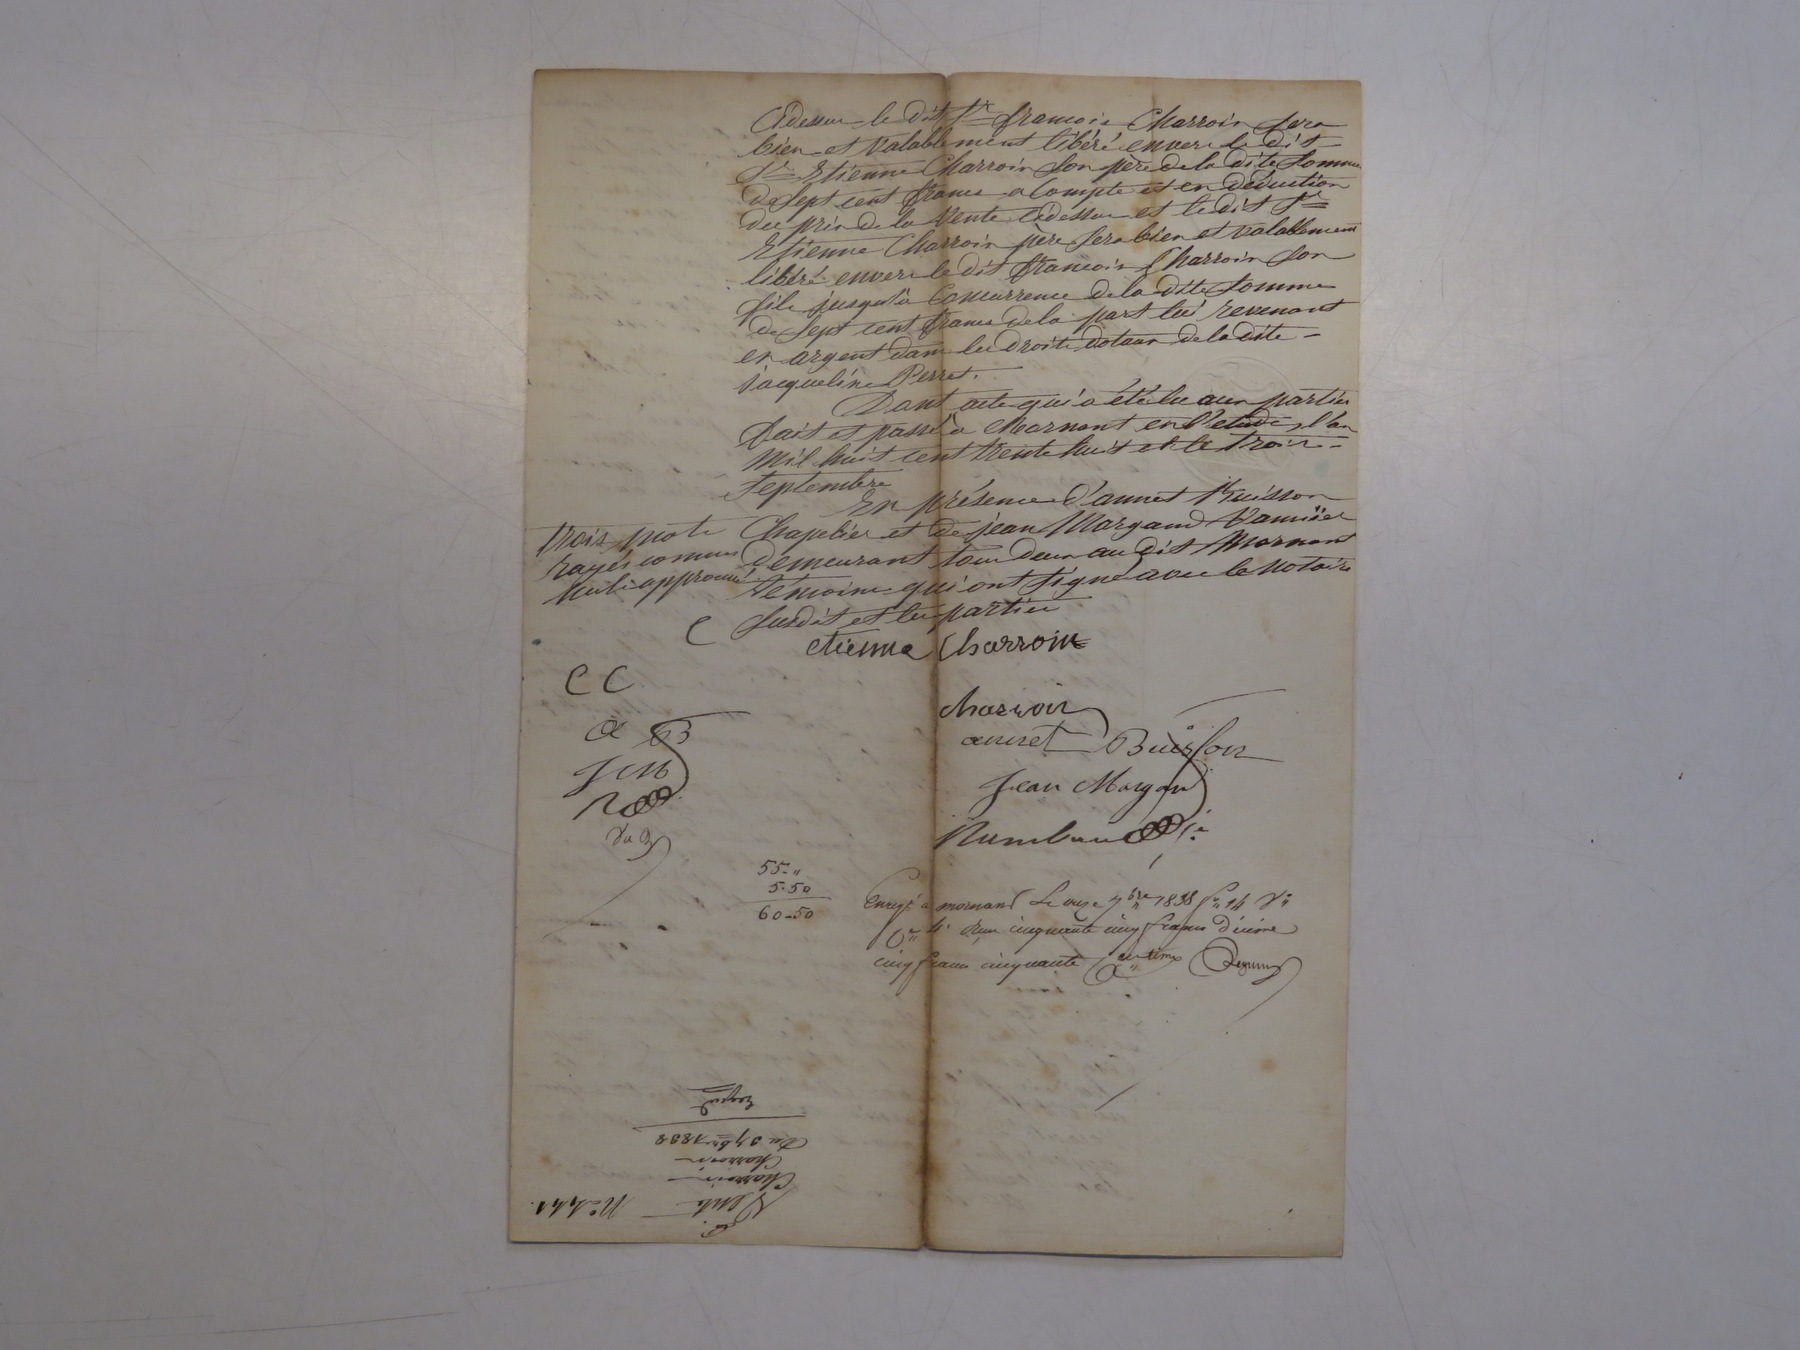 Cidessus le dit Sr françois Charroin sera
bien et valablement libéré envers le dit
Sr Etienne Charroin son père de la dite somme
de sept cent francs a compte et en déduction
du prix de la vente cidessus et le dit Sr
Etienne Charroin père sera bien et valablement
libéré envers le dit françois Charroin son
fils jusqu'à concurrence de la dite somme
de sept cent francs de la part lui revenant
en argent dans les droits dotaux de la dite
jacqueline Perret.
Dont acte qui a été lu aux parties
fait et passé à Mornant en l'étude, l'an
mil huit cent trente huit et le trois
septembre
En présence d'annet Buisson
Chapelier et de jean Margand Vannier
demeurant tous deux au dit Mornant
témoins qui ont signé avec le notaire
susdit et les parties
trois mots
rayés comme
nuls approuvés
C
etienne Charroin
C C
charroin
a B
annet Buisson
J M
Jean Margan
55-"
5-50
60-50
Enregé à mornant Le onze 7bre 1838 fo 14 Vo
Co 4. Reçu cinquante cinq francs Décime
cinq francs cinquante Centimes
Vente
Charroin
Charroin
Du 3 7bre 1838